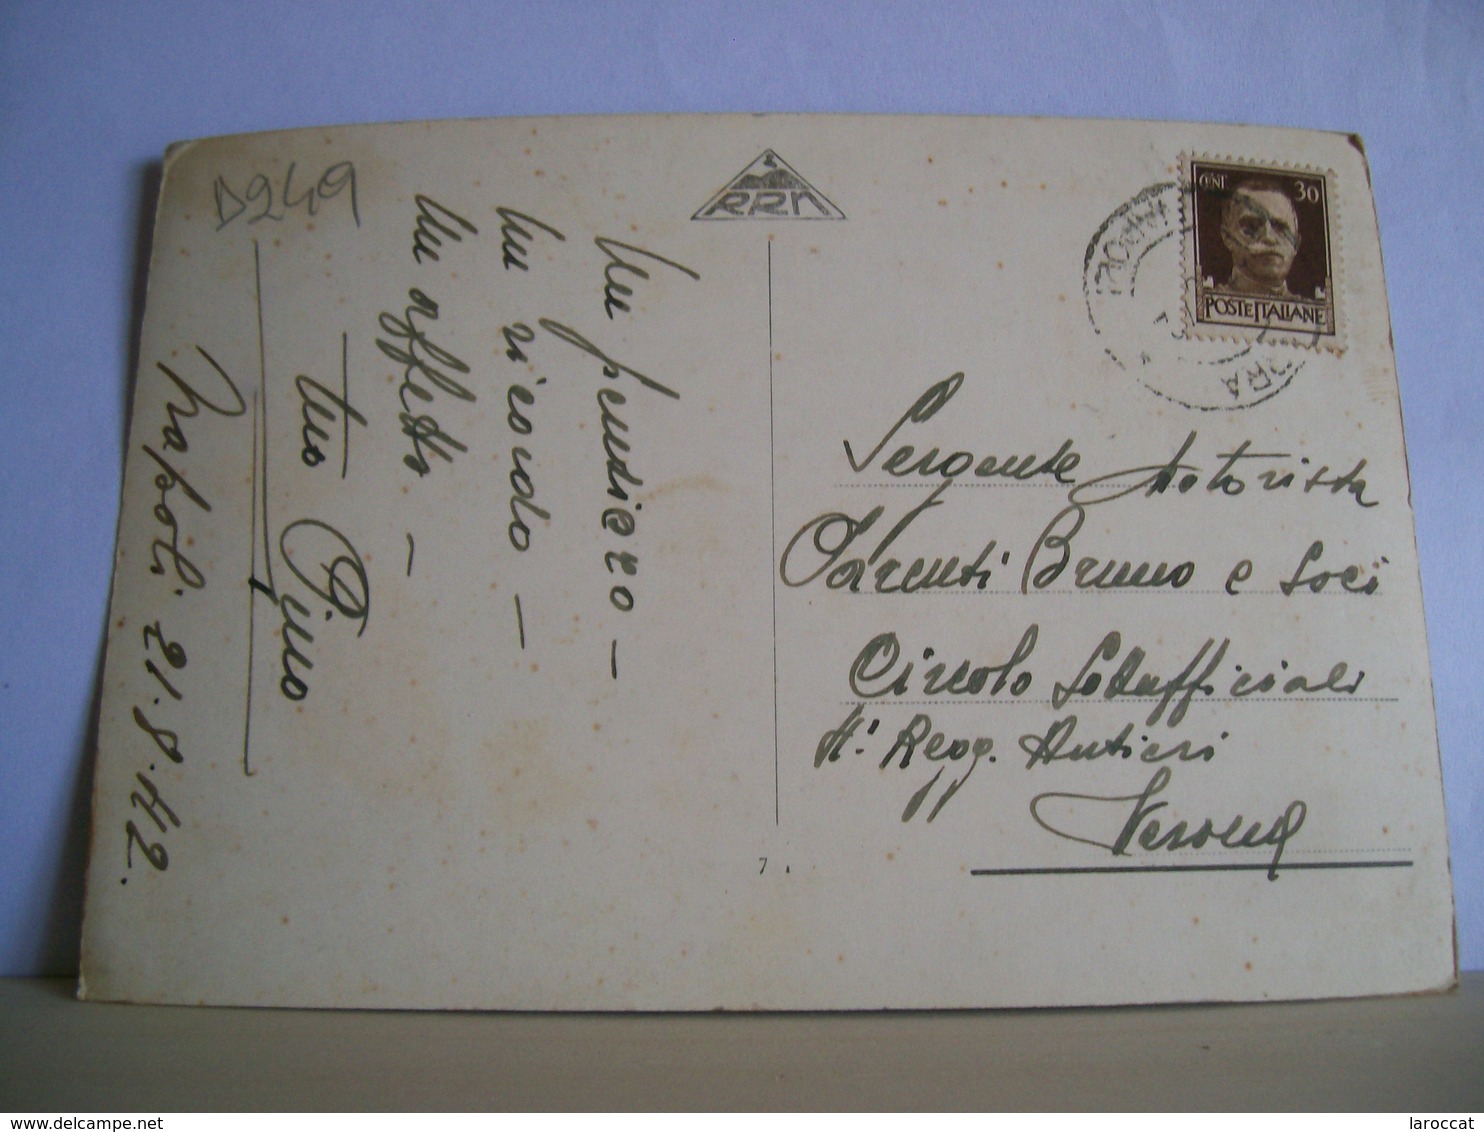 D249
RRN
Un pensiero -
Un ricordo -
Un affetto -
tuo Gino
Napoli. 21.8.42.
CENT 30
POSTE ITALIANE
NAPOLI
Sergente Motorista
Parenti Bruno e Soci
Circolo Sottufficiali
4° Regg. Autieri
Verona
7
laroccat